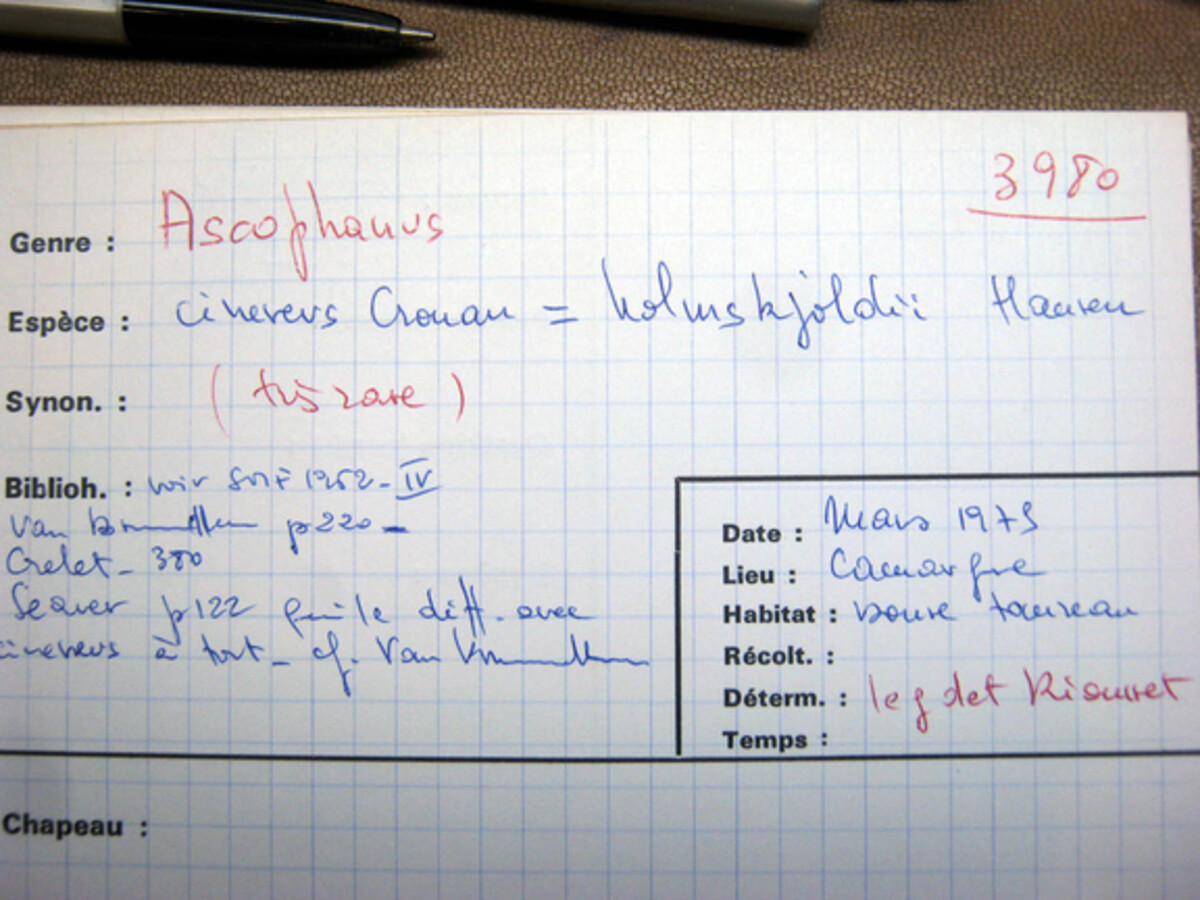 3980
Genre : Ascophanus
Espèce : cinereus Crouan = holmskjoldii Hansen
Synon. : (très rare)
Biblioh. : voir 1952 - IV
Van p 220 -
Grelet - 380
Seaver p 122 qui le diff. avec
cinereus à tort - cf. Van
Date : Mars 1975
Lieu : Camargue
Habitat : bouse taureau
Récolt. :
Déterm. : leg det Riousset
Temps :
Chapeau :